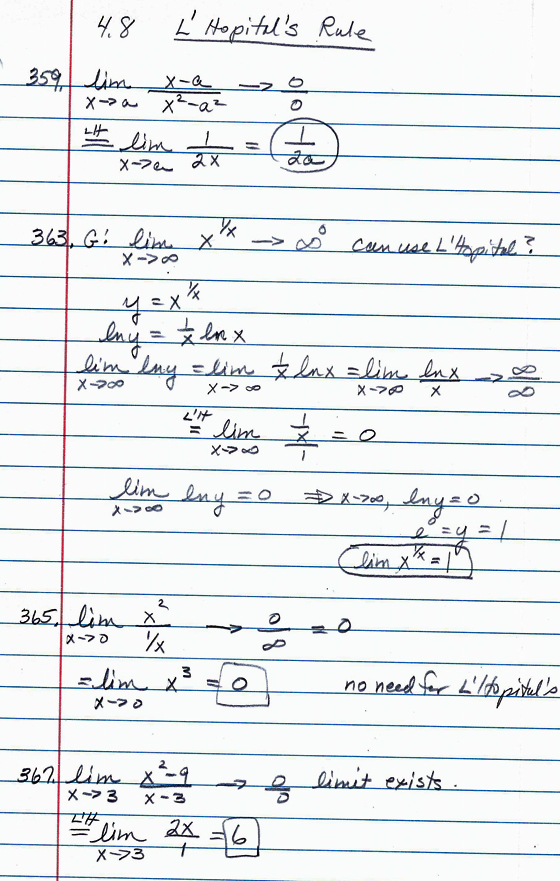 4.8 L'Hopital's Rule
359. lim x→a (x-a)/(x²-a²) → 0/0
L'H= lim x→a 1/(2x) = 1/(2a)
363. G: lim x→∞ x^(1/x) → ∞⁰ can use L'Hopital?
y = x^(1/x)
ln y = 1/x ln x
lim x→∞ ln y = lim x→∞ 1/x ln x = lim x→∞ (ln x)/x → ∞/∞
L'H= lim x→∞ (1/x)/1 = 0
lim x→∞ ln y = 0 ⇒ x→∞, ln y = 0
e⁰ = y = 1
lim x^(1/x) = 1
365. lim x→0 x²/(1/x) → 0/∞ = 0
= lim x→0 x³ = 0 no need for L'Hopital's
367. lim x→3 (x²-9)/(x-3) → 0/0 limit exists.
L'H= lim x→3 2x/1 = 6